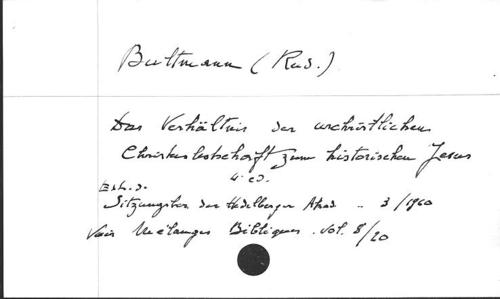 Bultmann (Rud.)
Das Verhältnis der urchristlichen
Christusbotschaft zum historischen Jesus
4. ed.
Extr. d.
Sitzungsber. der Heidelberger Akad. .. 3/1960
Voir Mélanges Bibliques. vol. 8/20